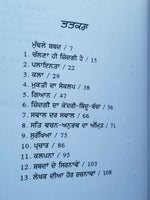 ਤਤਕਰਾ
ਮੁੱਢਲੇ ਸ਼ਬਦ / 7
1. ਚੱਲਣਾ ਹੀ ਜ਼ਿੰਦਗੀ ਹੈ / 15
2. ਪਲਾਇਨਤਾ / 22
3. ਕਲਾ / 29
4. ਮੁਕਤੀ ਦਾ ਸੰਕਲਪ / 38
5. ਗਿਆਨ / 47
6. ਜ਼ਿੰਦਗੀ ਦਾ ਕੇਂਦਰੀ-ਬਿੰਦੂ-ਥੰਮ / 56
7. ਸਵਾਲ ਦਰ ਸਵਾਲ / 66
8. ਸਤਿ ਵਚਨ-ਅਨੁਭਵ ਦਾ ਅੰਮ੍ਰਿਤ / 71
9. ਸੁਰੱਖਿਆ / 75
10. ਪ੍ਰਚਾਰ / 86
11. ਕਲਪਨਾ / 95
12. ਸ਼ਬਦਾਂ ਦੇ ਸਿਰਨਾਵੇਂ / 103
13. ਲੇਖਕ ਦੀਆਂ ਹੋਰ ਰਚਨਾਵਾਂ / 108